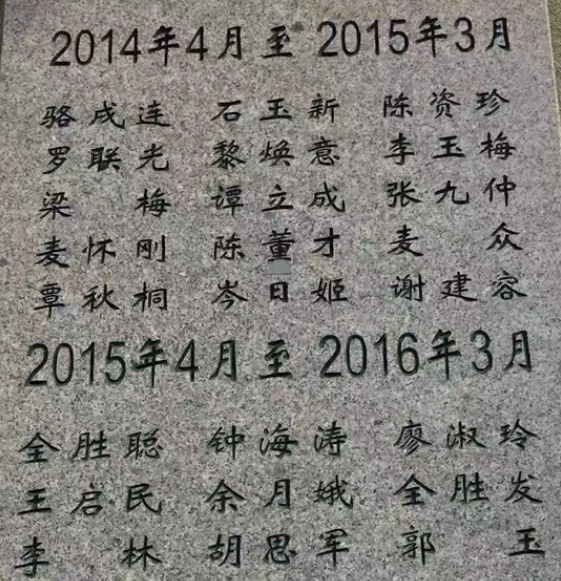 2014年4月至2015年3月
骆成连 石玉新 陈资珍
罗联光 黎焕意 李玉梅
梁梅 谭立成 张九仲
麦怀刚 陈董才 麦众
覃秋桐 岑日姬 谢建容
2015年4月至2016年3月
全胜聪 钟海涛 廖淑玲
王启民 余月娥 全胜发
李林 胡思军 郭玉